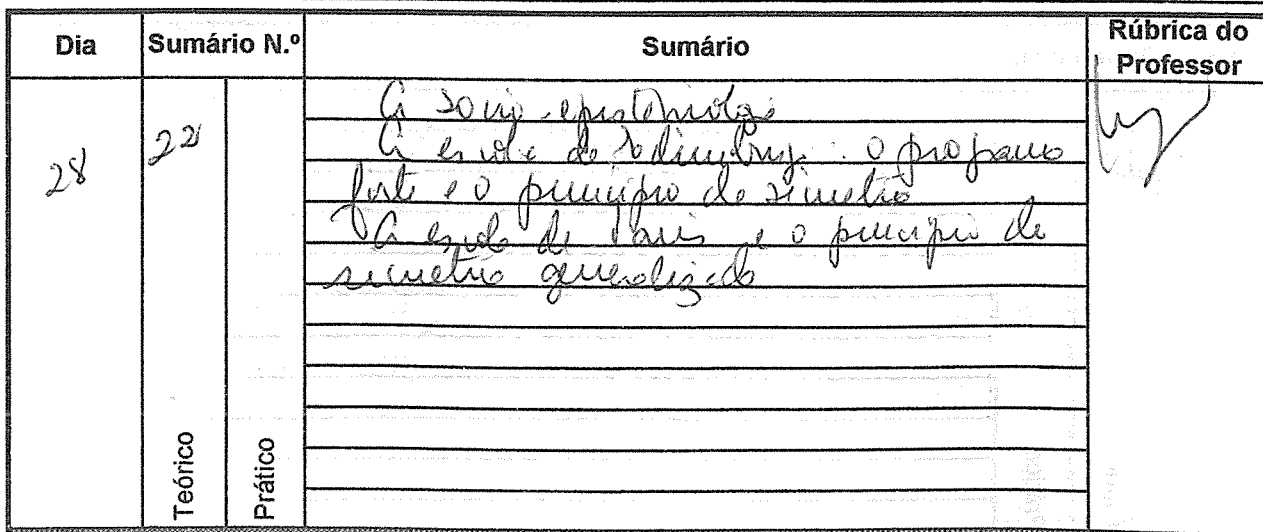 Dia Sumário N.º Sumário Rúbrica do Professor
28 22 A socio-epistemologia
A escola de Edimburgo: o programa
forte e o princípio de simetria
A escola de Paris e o princípio de
simetria generalizado
Teórico Prático